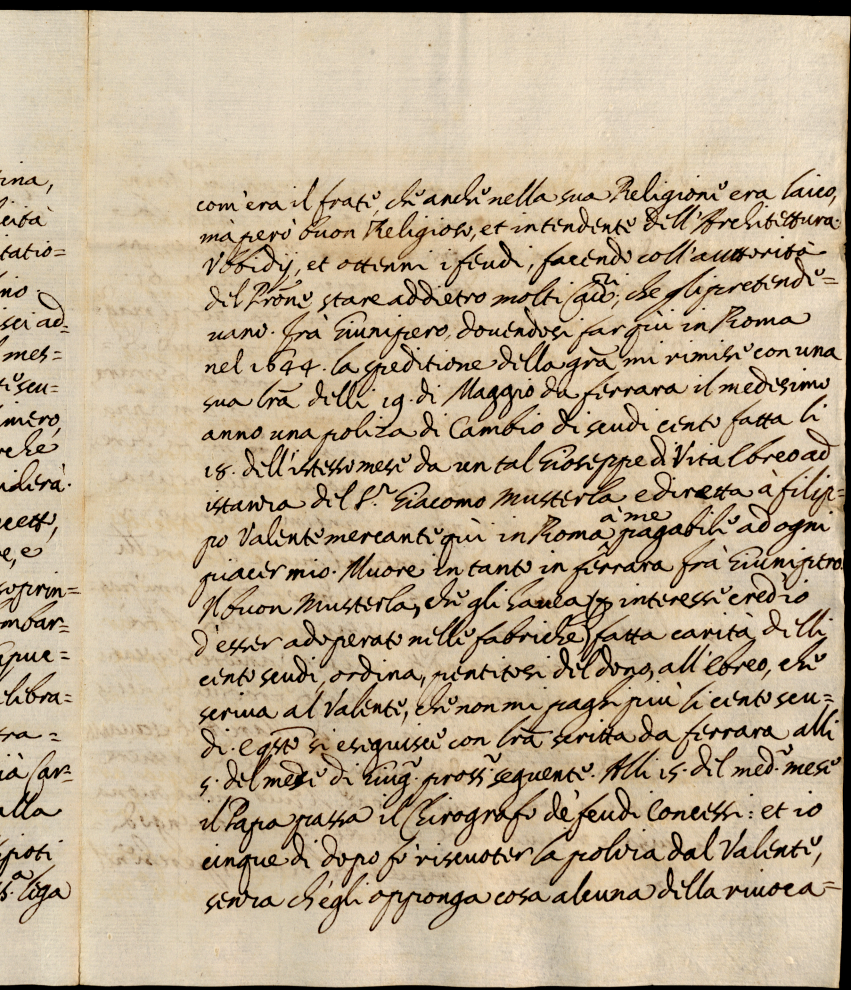 tina,
licità
tatio=
no.
isci ad=
mes=
te scu=
imero,
rche
siderà.
ccett,
e, e
soprin=
mbar=
que=
elibra=
ra=
ià Car=
alla
poti
lega
com'era il frate, che anche nella sua Religione era laico,
mà però buon Religioso, et intendente dell'Architettura.
Vbbidij, et ottenni i feudi, facendo coll'auttorità
del Prõne stare addietro molti che gli pretende=
uano. Frà Giunipero, douendosi far quì in Roma
nel 1644. la speditione della grã, mi rimise con una
sua lrã delli 19. di Maggio da ferrara il medesimo
anno una poliza di Cambio di scudi cento fatta li
18. dell'istesso mese da un tal Gioseppe di Vita Ebreo ad
istanza del S.r Giacomo Musterla e diretta à filip=
po Valente mercante quì in Roma à me pagabile ad ogni
piacer mio. Muore in tanto in ferrara frà Giunipero.
Il buon Musterla, che gli hauea (p interesse cred'io
d'esser adoperato nelle fabriche) fatta carità delli
cento scudi, ordina, pentitosi del dono, all'Ebreo, che
scriua al Valente, che non mi paghi più li cento scu=
di. e qsto si eseguisce con lrã scritta da ferrara alli
5. del mese di Giug. pross. seguente. Alli 15. del med. mese
il Papa passa il Chirografo de' feudi concessi: et io
cinque dì dopo fò riscuoter la poliza dal Valente,
senza ch'egli opponga cosa alcuna della riuoca=